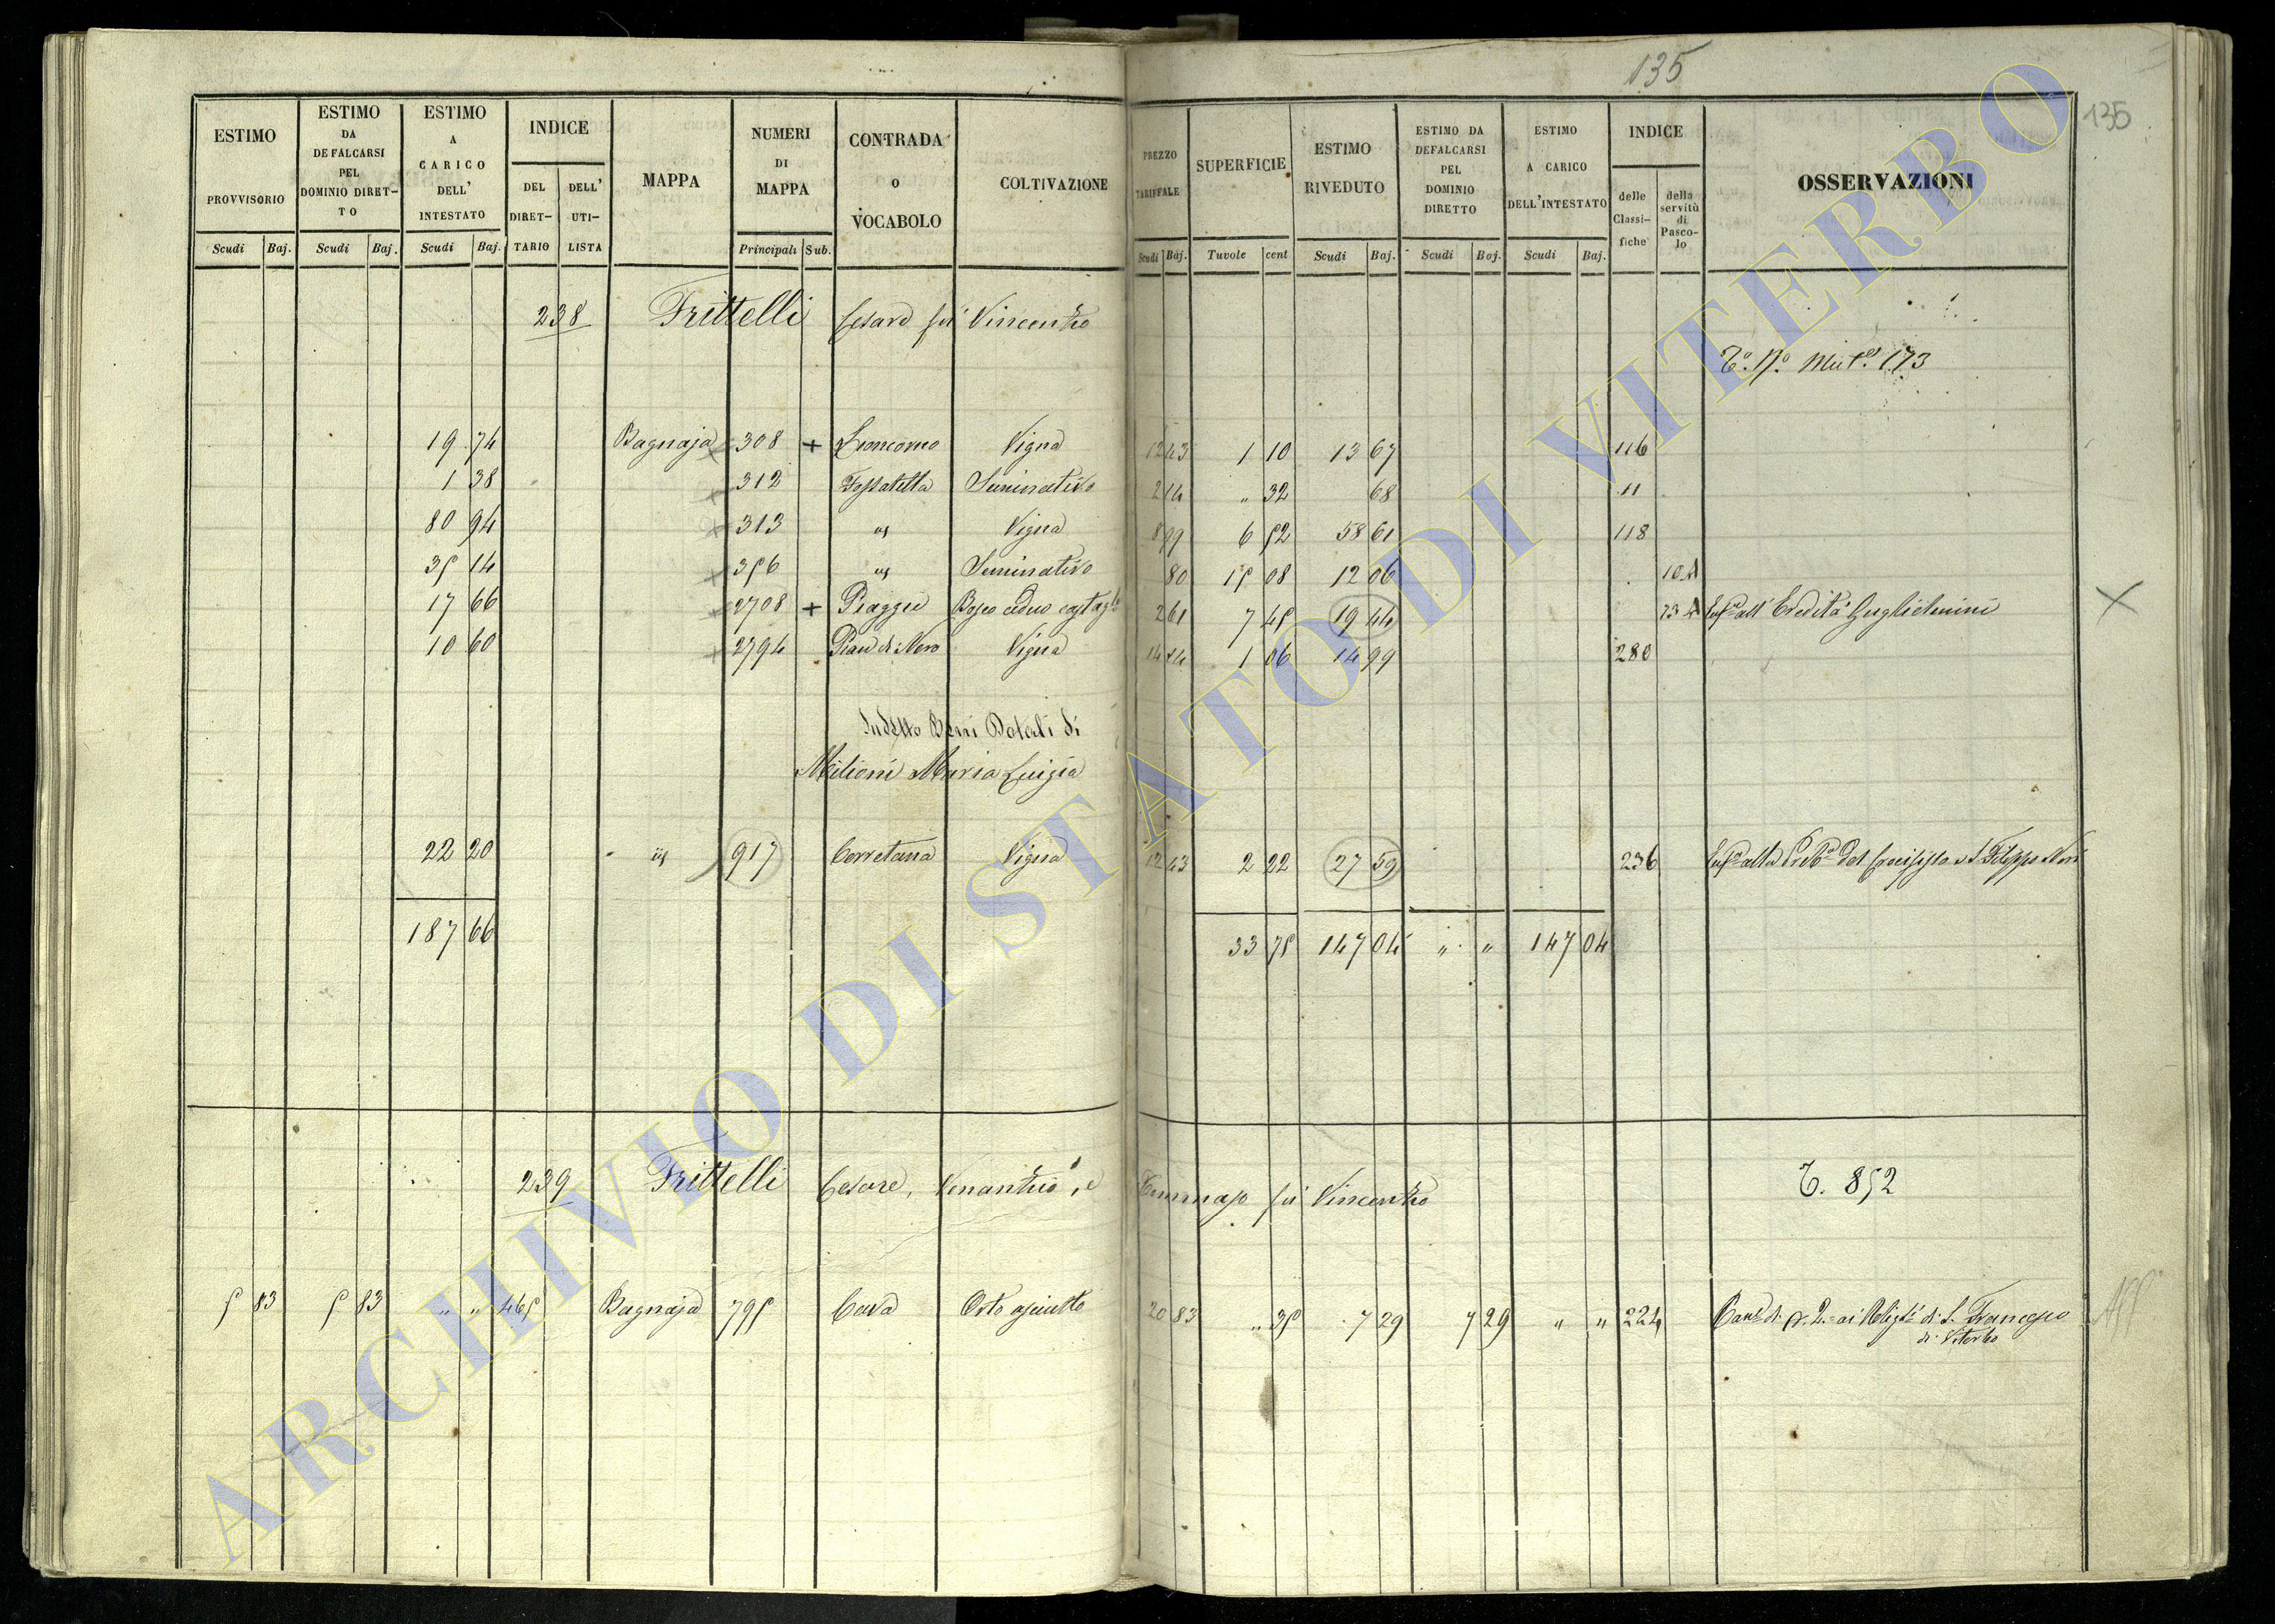 135
135
ESTIMO PROVVISORIO Scudi Baj.
ESTIMO DA DEFALCARSI PEL DOMINIO DIRET-TO Scudi Baj.
ESTIMO A CARICO DELL' INTESTATO Scudi Baj.
INDICE DEL DIRET-TARIO DELL' UTI-LISTA
MAPPA
NUMERI DI MAPPA Principali Sub.
CONTRADA o VOCABOLO
COLTIVAZIONE
PREZZO TARIFFALE Scudi Baj.
SUPERFICIE Tavole cent
ESTIMO RIVEDUTO Scudi Baj.
ESTIMO DA DEFALCARSI PEL DOMINIO DIRETTO Scudi Baj.
ESTIMO A CARICO DELL'INTESTATO Scudi Baj.
INDICE delle Classi-fiche della servitù di Pasco-lo
OSSERVAZIONI
238 Frittelli Cesare fu Vincenzo
173
19 74 Bagnaja 308 + Vigna 12 43 1 10 13 67 116
1 38 312 Fossatella Seminativo 2 14 " 32 68 11
80 94 313 Vigna 8 99 6 52 58 61 118
35 14 356 Seminativo 80 15 08 12 06 10 A
17 66 2708 + Piagge Bosco ceduo 2 61 7 45 19 44 73 A all' Eredità Guglielmini
10 60 2794 Pian di Nero Vigna 14 14 1 06 14 99 280
Sudetto Beni Dotali di
Milioni Maria Luigia
22 20 917 Corretana Vigna 12 43 2 22 27 59 236
187 66 33 75 147 04 " " 147 04
239 Frittelli Cesare, Venanzio, e Tommaso fu Vincenzo
T. 852
5 83 5 83 " " 465 Bagnaja 795 Cava Orto asciutto 20 83 " 35 7 29 7 29 " " 224 di S. Francesco
di Viterbo
ARCHIVIO DI STATO DI VITERBO